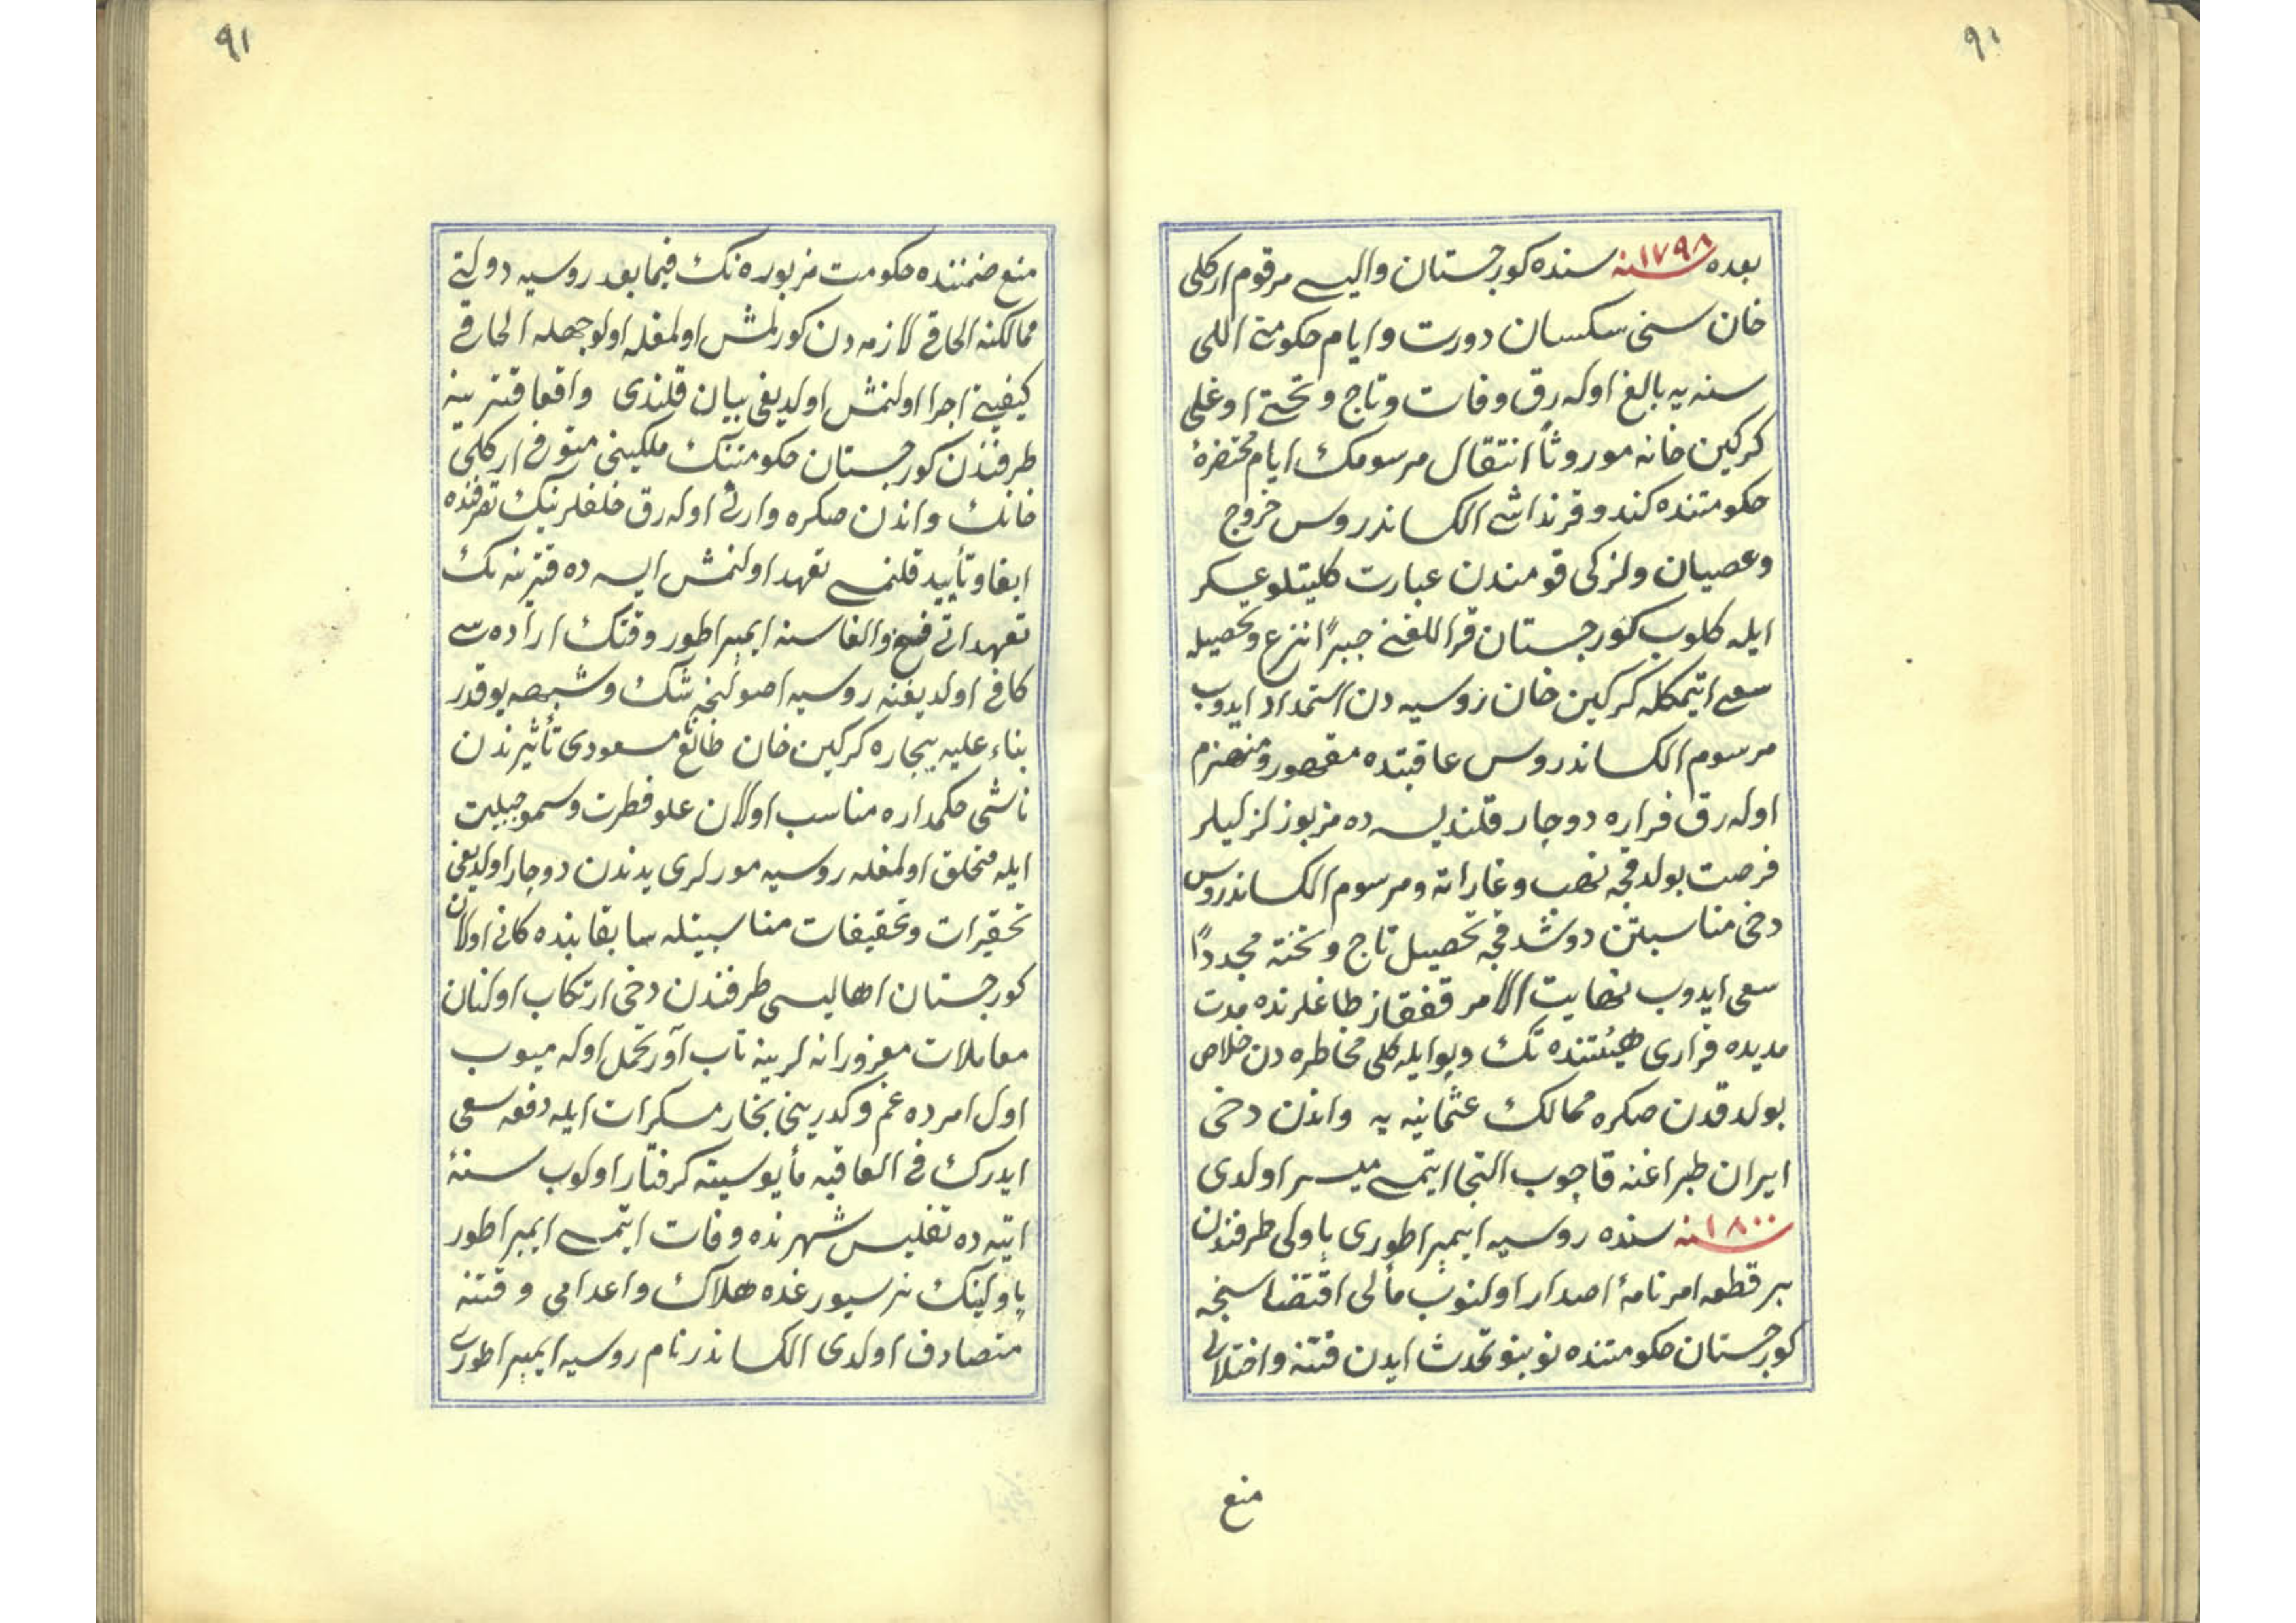 ٩٠
بعده ١٧٩٨ سنه سنده كورجستان واليسى مرقوم اركلى
خان سنى سكسان دورت و ايام حكومتى اللى
سنه يه بالغ اوله رق وفات و تاج و تختى اوغلى
كركين خانه موروثاً انتقال مرسومك ايام مختصرهٔ
حكومتنده كندو قرنداشى الكساندروس خروج
وعصيان ولزكى قومندن عبارت كليتلو عسكر
ايله كلوب كورجستان قراللغنى جبراً نزع و تحصيله
سعى ايتمكله كركين خان روسيه دن استمداد ايدوب
مرسوم الكساندروس عاقبتده مقهور و منهزم
اوله رق فراره دوچار قلنديسه ده مزبور لزكيلر
فرصت بولدقجه نهب وغاراته ومرسوم الكساندروس
دخى مناسبتن دوشدقجه تحصيل تاج و تخته مجدداً
سعى ايدوب نهايت الامر قفقاز طاغلرنده مدت
مديده فرارى هيئتنده تك وپوايله كلى مخاطره دن خلاص
بولدقدن صكره ممالك عثمانيه يه واندن دخى
ايران طپراغنه قاچوب التجا ايتمسى ميسر اولدى
١٨٠٠ سنه سنده روسيه ايمپراطورى پاولى طرفندن
بر قطعه امرنامهٔ اصدار اولنوب مألى اقتضاسنجه
كورجستان حكومتنده نو بنو تحدث ايدن فتنه واختلالى
منع
٩١
منع ضمننده حكومت مزبوره نك فيمابعد روسيه دولتى
ممالكنه الحاقى لازمه دن كورلمش اولمغله اولوجهله الحاقى
كيفيتى اجرا اولنمش اولديغى بيان قلندى واقعا قترينه
طرفندن كورجستان حكومتنك ملكيتى متوفى اركلى
خانك واندن صكره وارثى اوله رق خلفلرينك تصرفنده
ابقا و تأييد قلنمسى تعهد اولنمش ايسه ده قترينه نك
تعهداتى فسخ والغاسنه ايمپراطور وقتك اراده سى
كافى اولديغنه روسيه اصولنجه شك وشبهه يوقدر
بناء عليه بيچاره كركين خان طالع مسعودى تأثيرندن
ناشى حكمداره مناسب اولان علو فطرت وسمو جبليت
ايله متخلق اولمغله روسيه مورلرى يدندن دوچار اولديغى
تحقيرات وتخفيفات مناسبيتله سابقا بنده كانى اولان
كورجستان اهاليسى طرفندن دخى ارتكاب اولنان
معاملات مغرورانه لرينه تاب آور تحمل اوله ميوب
اول امرده غم و كدرينى بخار مسكرات ايله دفعه سعى
ايدرك فى العاقبه مأيوسيته كرفتار اولوب سنهٔ
اتيه ده تفليس شهرنده وفات ايتمسى ايمپراطور
پاولينك هلاك واعدامى وقتنه
متصادف اولدى الكساندر نام روسيه ايمپراطورى